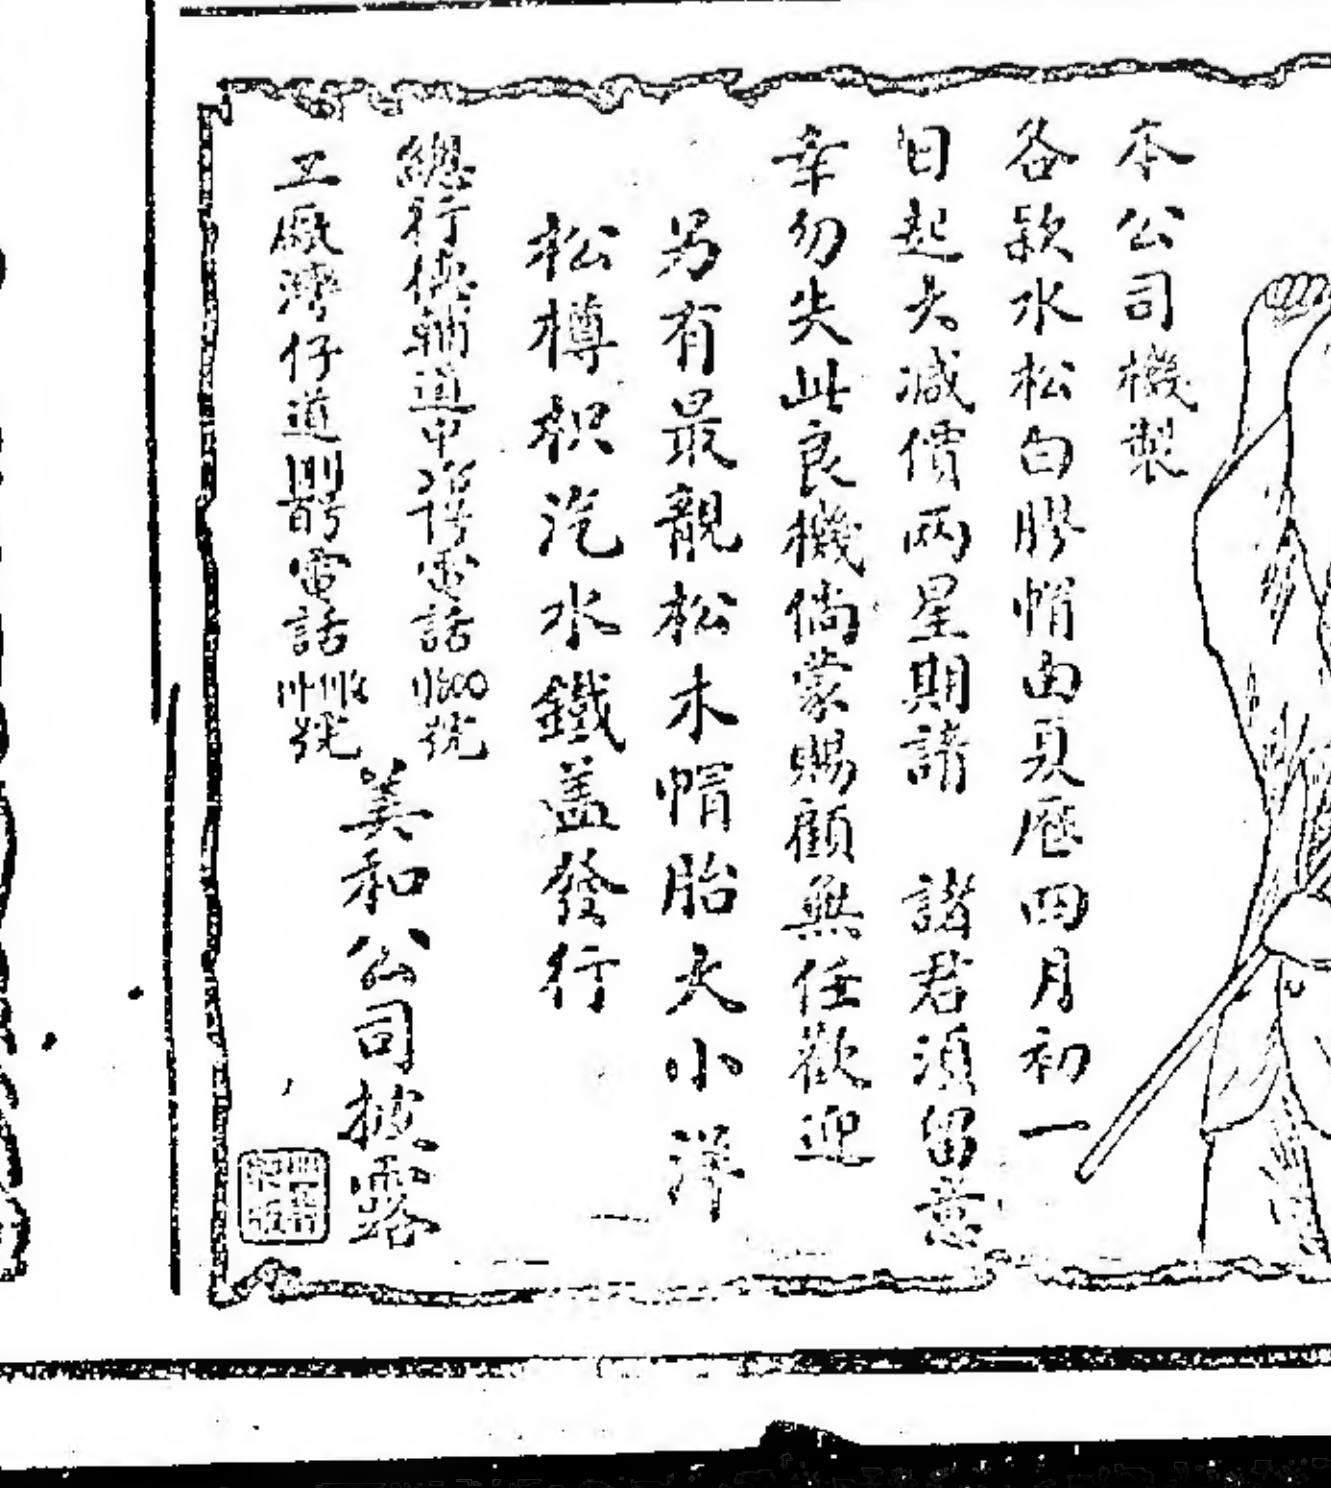 本公司機製
各款水松白膠帽由夏曆四月初一
日起大減價兩星期請 諸君須留意
幸勿失此良機倘蒙賜顧無任歡迎
另有最靚松木帽胎大小洋
松樽枳汽水鐵盖發行
總行德輔道中 電話 號
工厰灣仔道 電話 號
美和公司披露